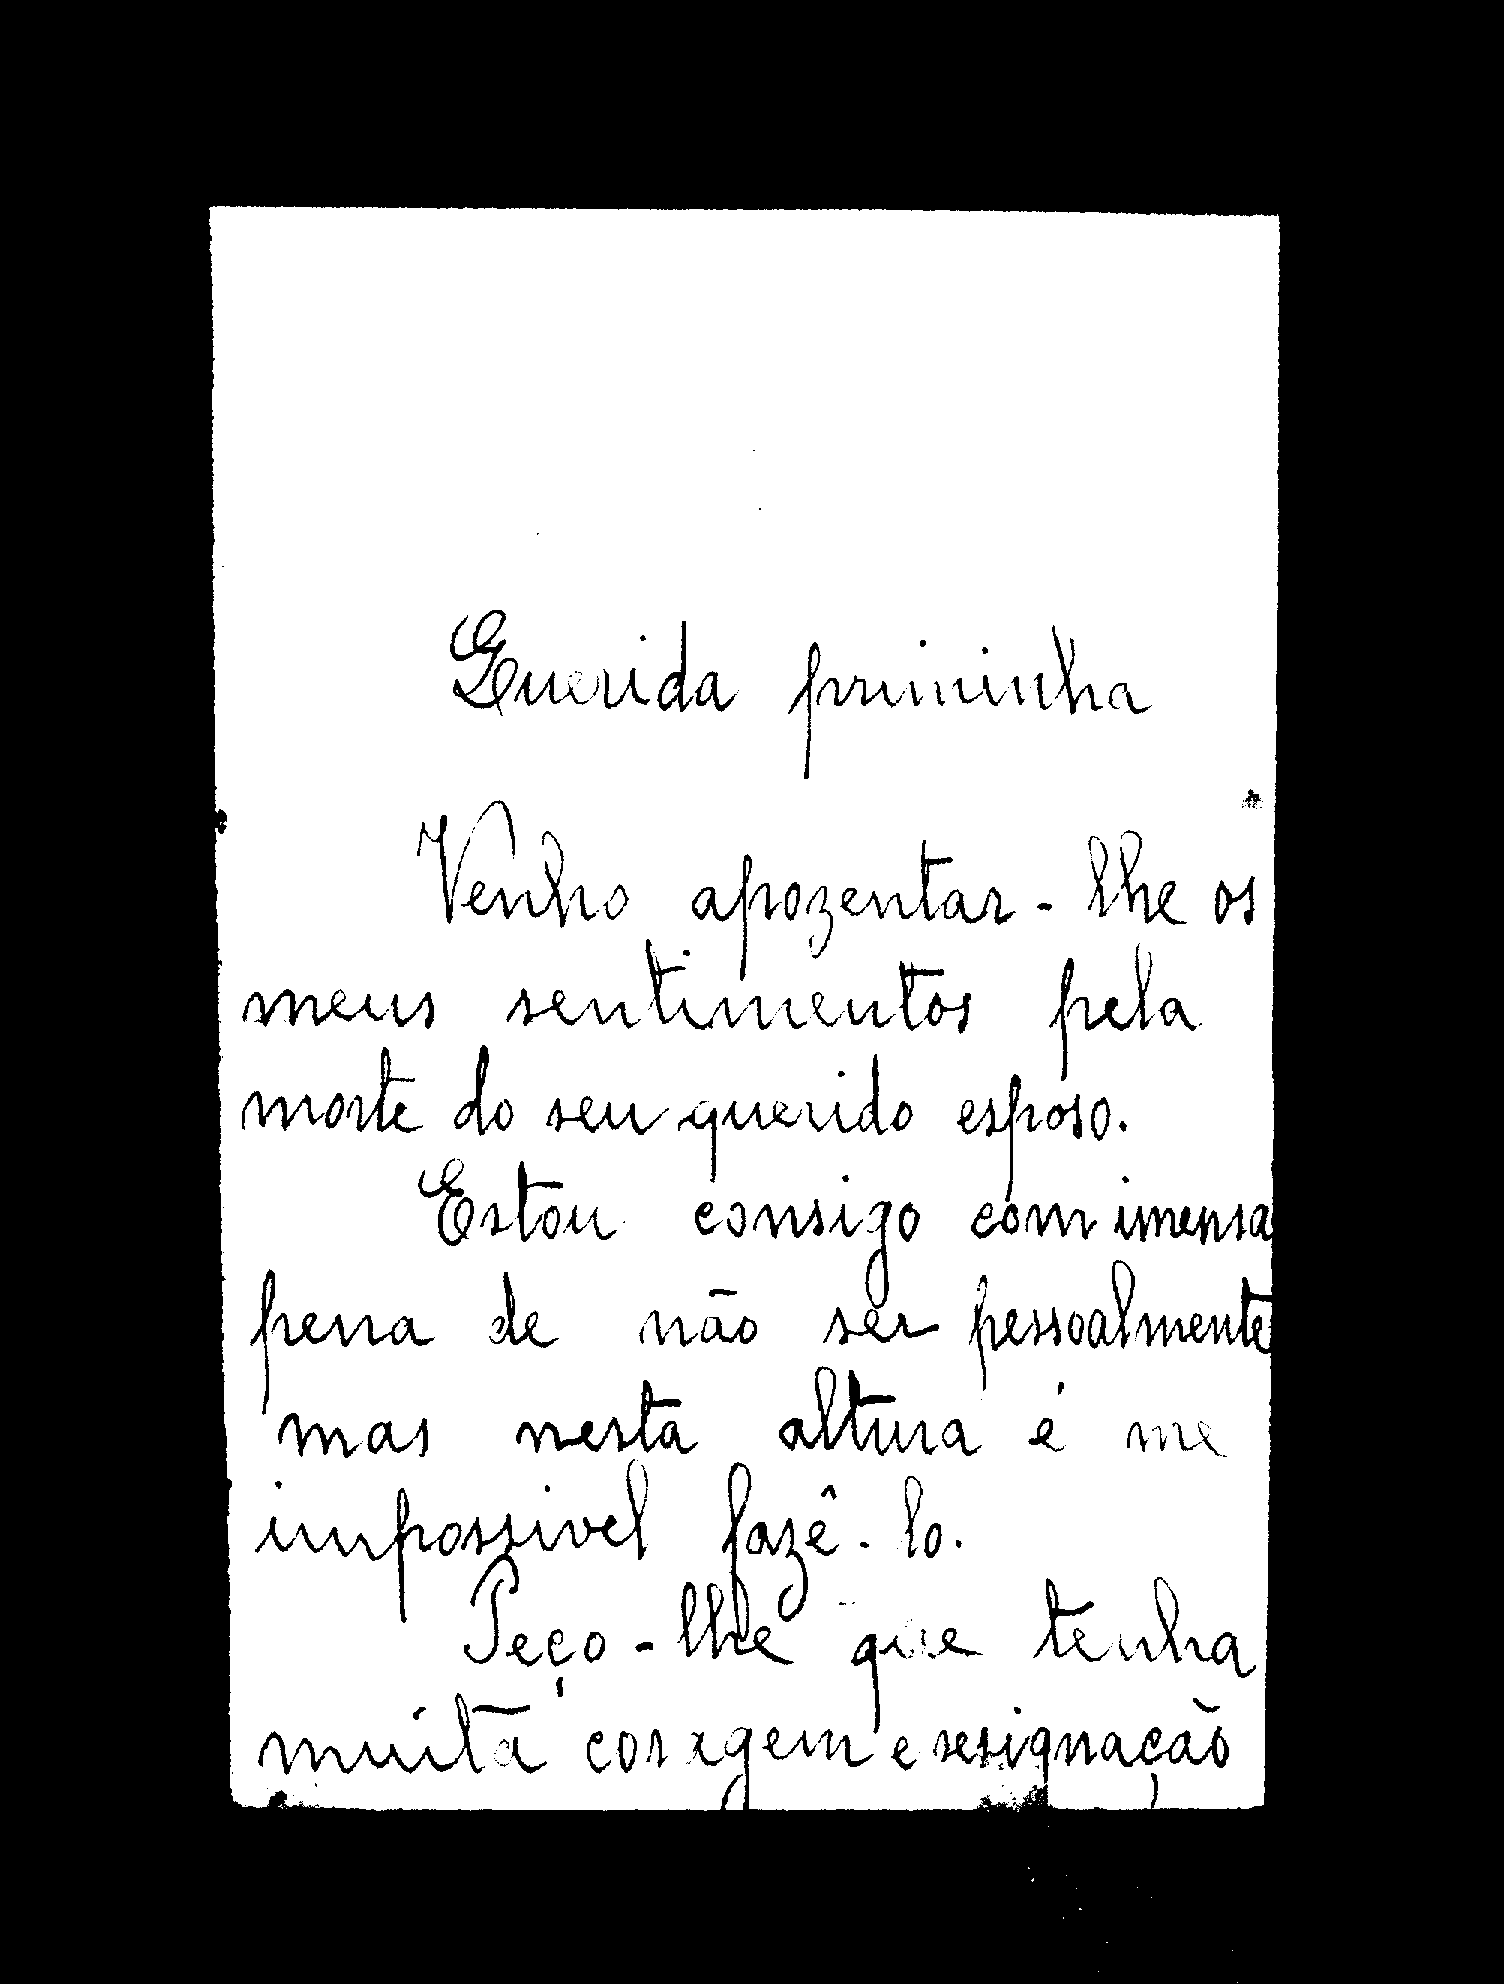 Querida priminha
Venho apozentar-lhe os
meus sentimentos pela
morte do seu querido esposo.
Estou consigo com imensa
pena de não ser pessoalmente
mas nesta altura é me
impossivel fazê-lo.
Peço-lhe que tenha
muita coragem e resignação